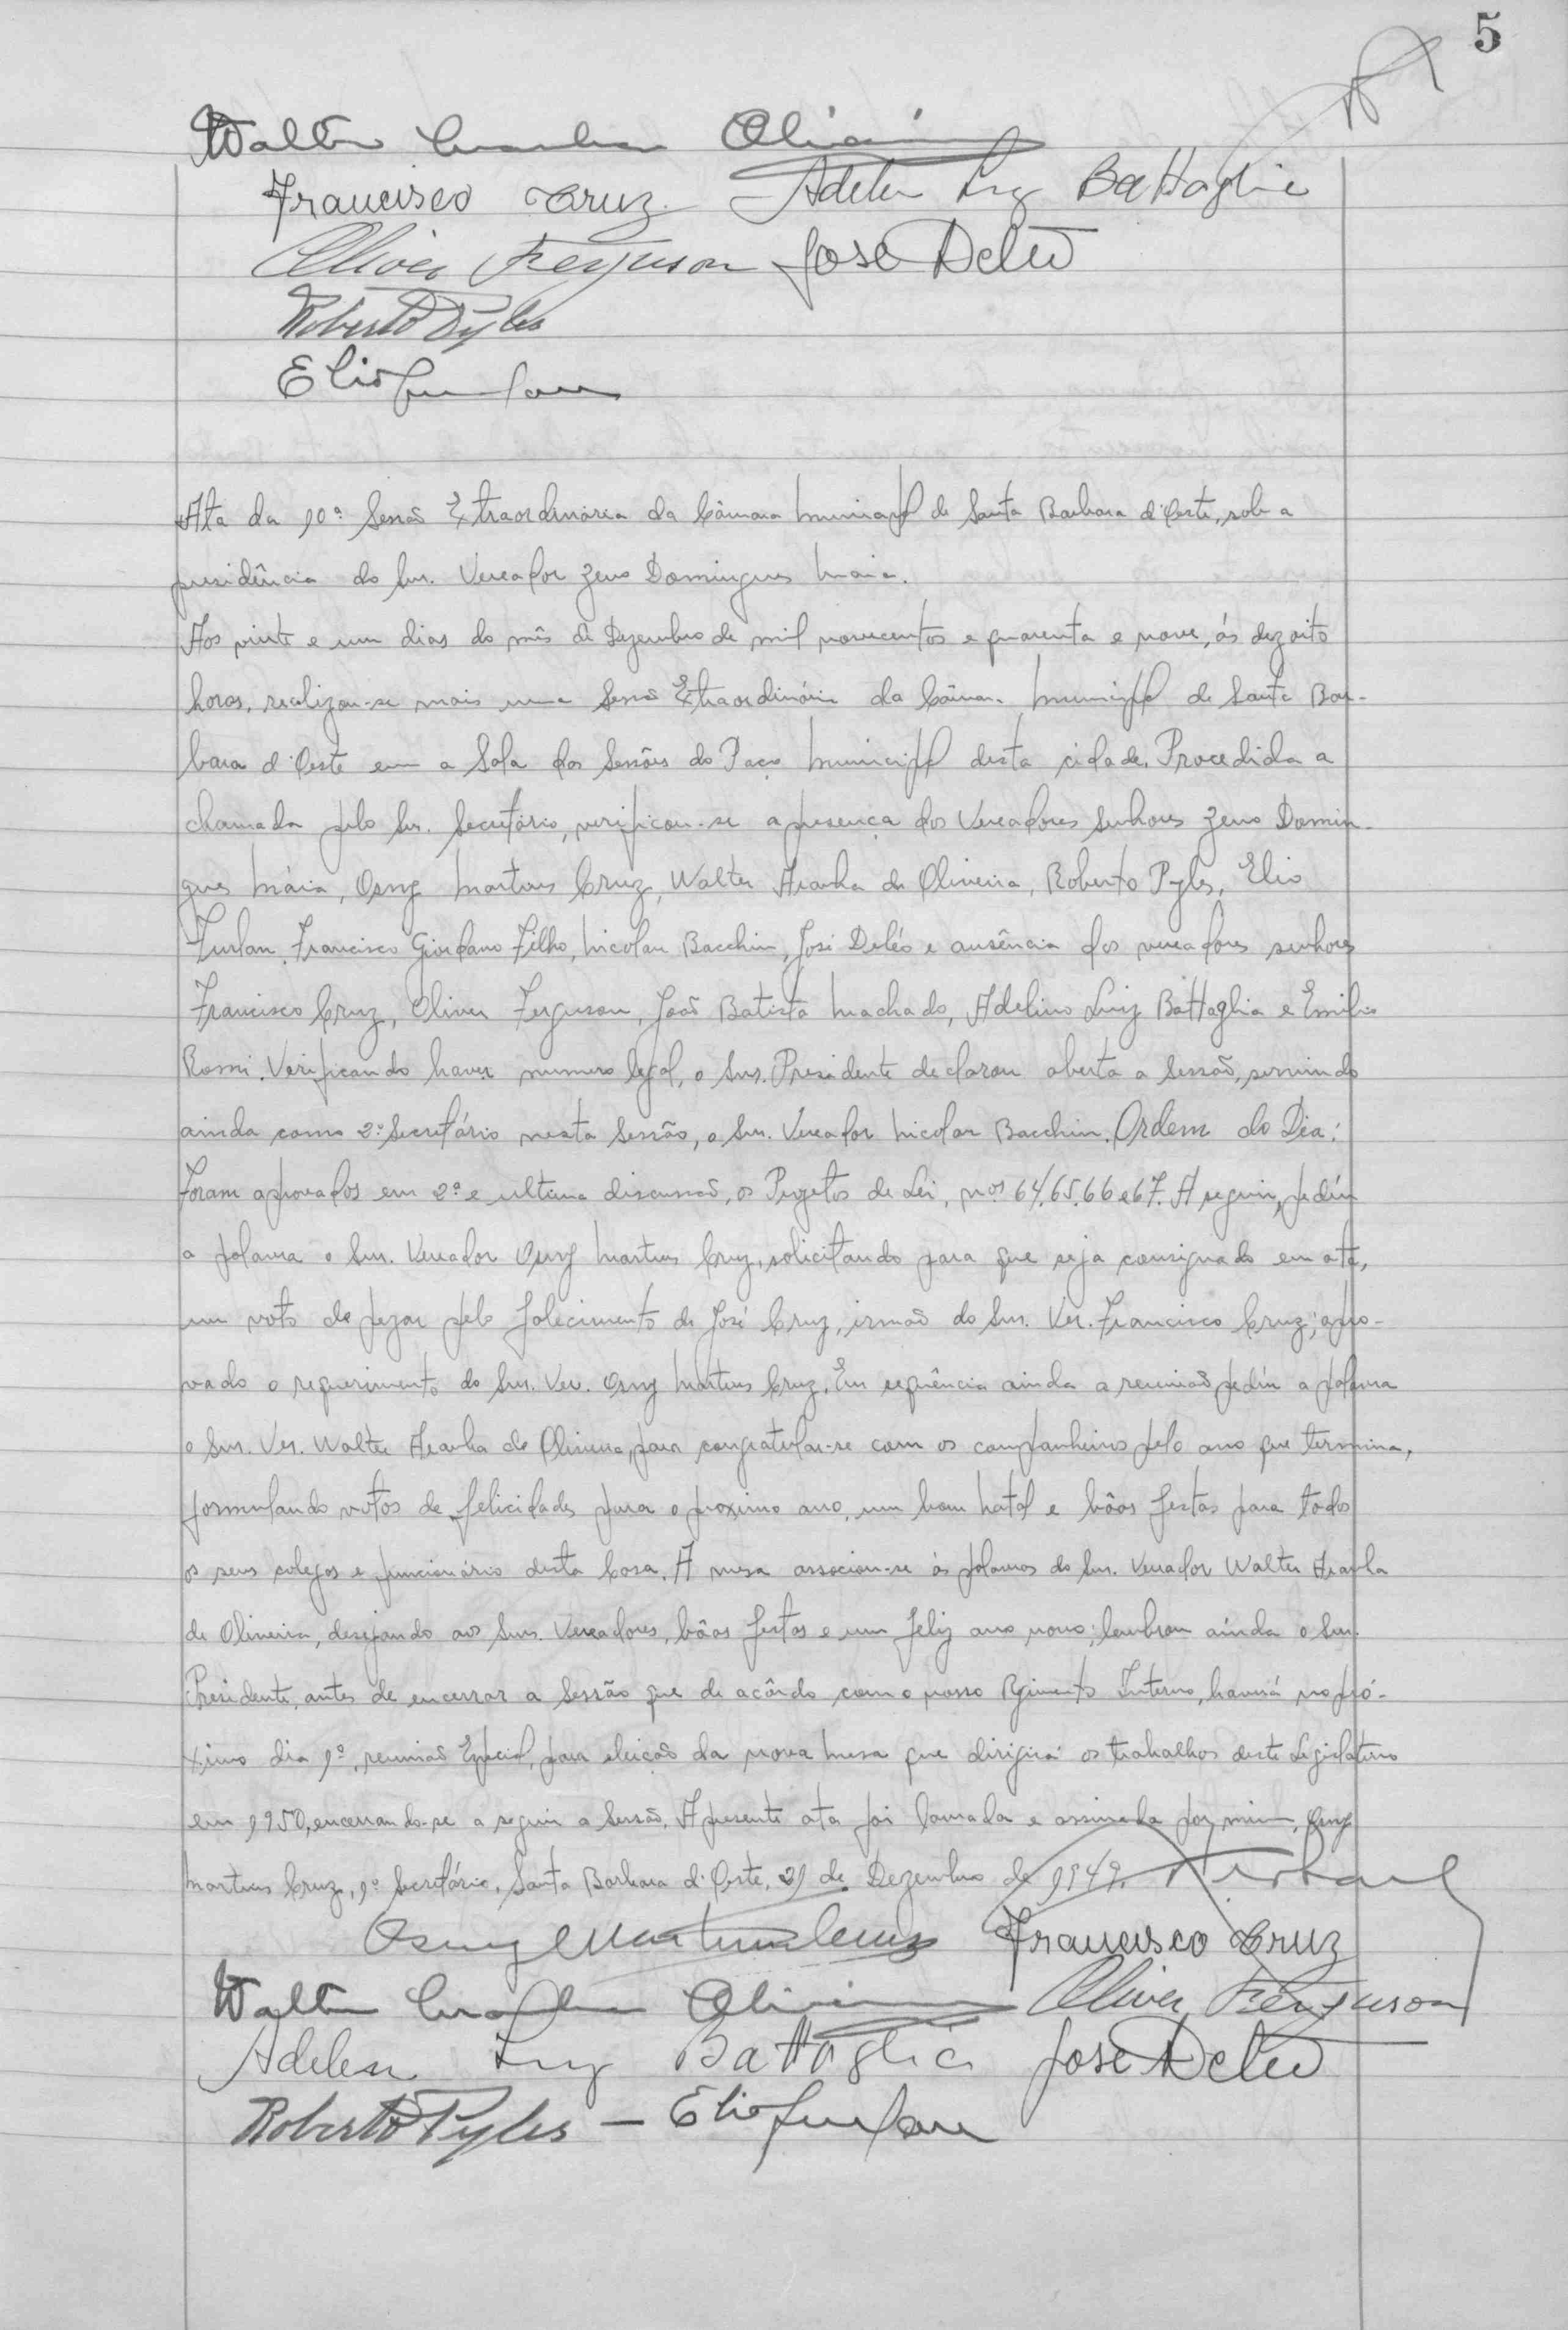 5
Walter Aranha Oliveira
Francisco Cruz Adelino Luiz Battaglia
Oliver Ferguson José Deléo
Roberto Pyles
Elio Furlan
Ata da 10ª Sessão Extraordinárea da Câmara Municipal de Santa Barbara d'Oeste, sob a
presidência do Snr. Vereador Zeno Domingues Maia.
Aos vinte e um dias do mês de Dezembro de mil novecentos e quarenta e nove, ás dezoito
horas, realizou-se mais uma Sessão Extraordinária da Câmara Municipal de Santa Bar-
bara d'Oeste em a Sala das Sessões do Paço Municipal desta cidade. Procedida a
chamada pelo Snr. Secretário, verificou-se a presença dos Vereadores Senhores Zeno Domin-
gues Máia, Osny Martins Cruz, Walter Aranha de Oliveira, Roberto Pyles, Elio
Furlan, Francisco Giordano Filho, Nicolau Bacchin, José Deléo e ausência dos vereadores senhores
Francisco Cruz, Oliver Ferguson, João Batista Machado, Adelino Luiz Battaglia e Emilio
Romi. Verificando haver numero legal, o Snr. Presidente declarou aberta a Sessão, servindo
ainda como 2º Secretário nesta Sessão, o Snr. Vereador Nicolau Bacchin. Ordem do Dia:
Foram aprovados em 2ª e ultima discussão, os Projetos de Lei, nos 64, 65, 66 e 67. A seguir, pediu
a palavra o Snr. Vereador Osny Martins Cruz, solicitando para que seja consignado em ata,
um voto de pezar pelo falecimento de José Cruz, irmão do Snr. Ver. Francisco Cruz; apro-
vado o requerimento do Snr. Ver. Osny Martins Cruz. Em sequência ainda a reunião pediu a palavra
o Snr. Ver. Walter Aranha de Oliveira, para congratular-se com os companheiros pelo ano que termina,
formulando votos de felicidades para o proximo ano, um bom Natal e bôas festas para todos
os seus colegas e funcionário desta Casa. A mesa associou-se ás palavras do Snr. Vereador Walter Aranha
de Oliveira, desejando aos Snrs. Vereadores, bôas festas e um feliz ano novo; lembrou ainda o Snr.
Presidente, antes de encerrar a Sessão que de acôrdo com o nosso Regimento Interno, haverá no pró-
ximo dia 1º, reunião Especial, para eleição da nova Mesa que dirigirá os trabalhos deste Legislativo
em 1950, encerrando-se a seguir a Sessão. A presente ata foi lavrada e assinada por mim, Osny
Martins Cruz, 1º Secretário. Santa Barbara d'Oeste, 21 de Dezembro de 1949.
Osny Martins Cruz Francisco Cruz
Walter Aranha Oliveira Oliver Ferguson
Adelino Luiz Battaglia José Deléo
Roberto Pyles - Elio Furlan